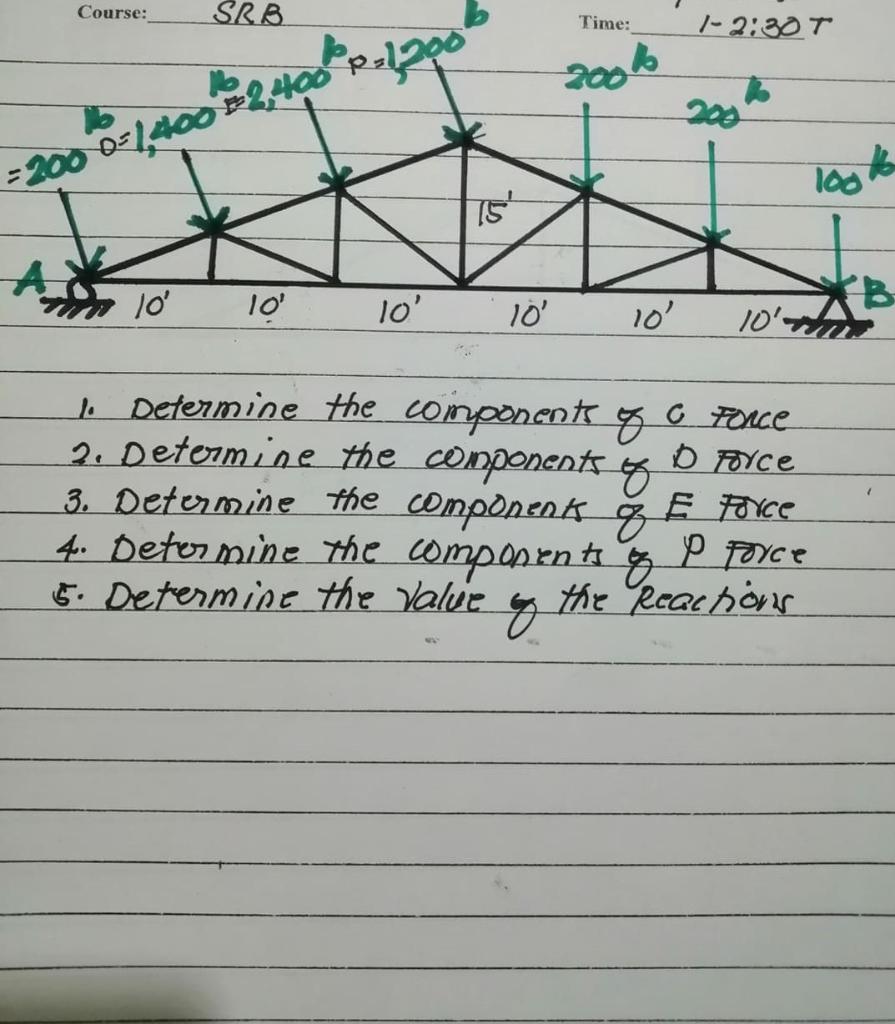 Course: SRB
Time: 1-2:30 T
=200 lb
D=1,400 lb
E=2,400 lb
P=1,200 lb
200 lb
200 lb
100 lb
15'
A
B
10' 10' 10' 10' 10' 10'
1. Determine the components of C Force
2. Determine the components of D Force
3. Determine the components of E Force
4. Determine the components of P Force
5. Determine the value of the Reactions